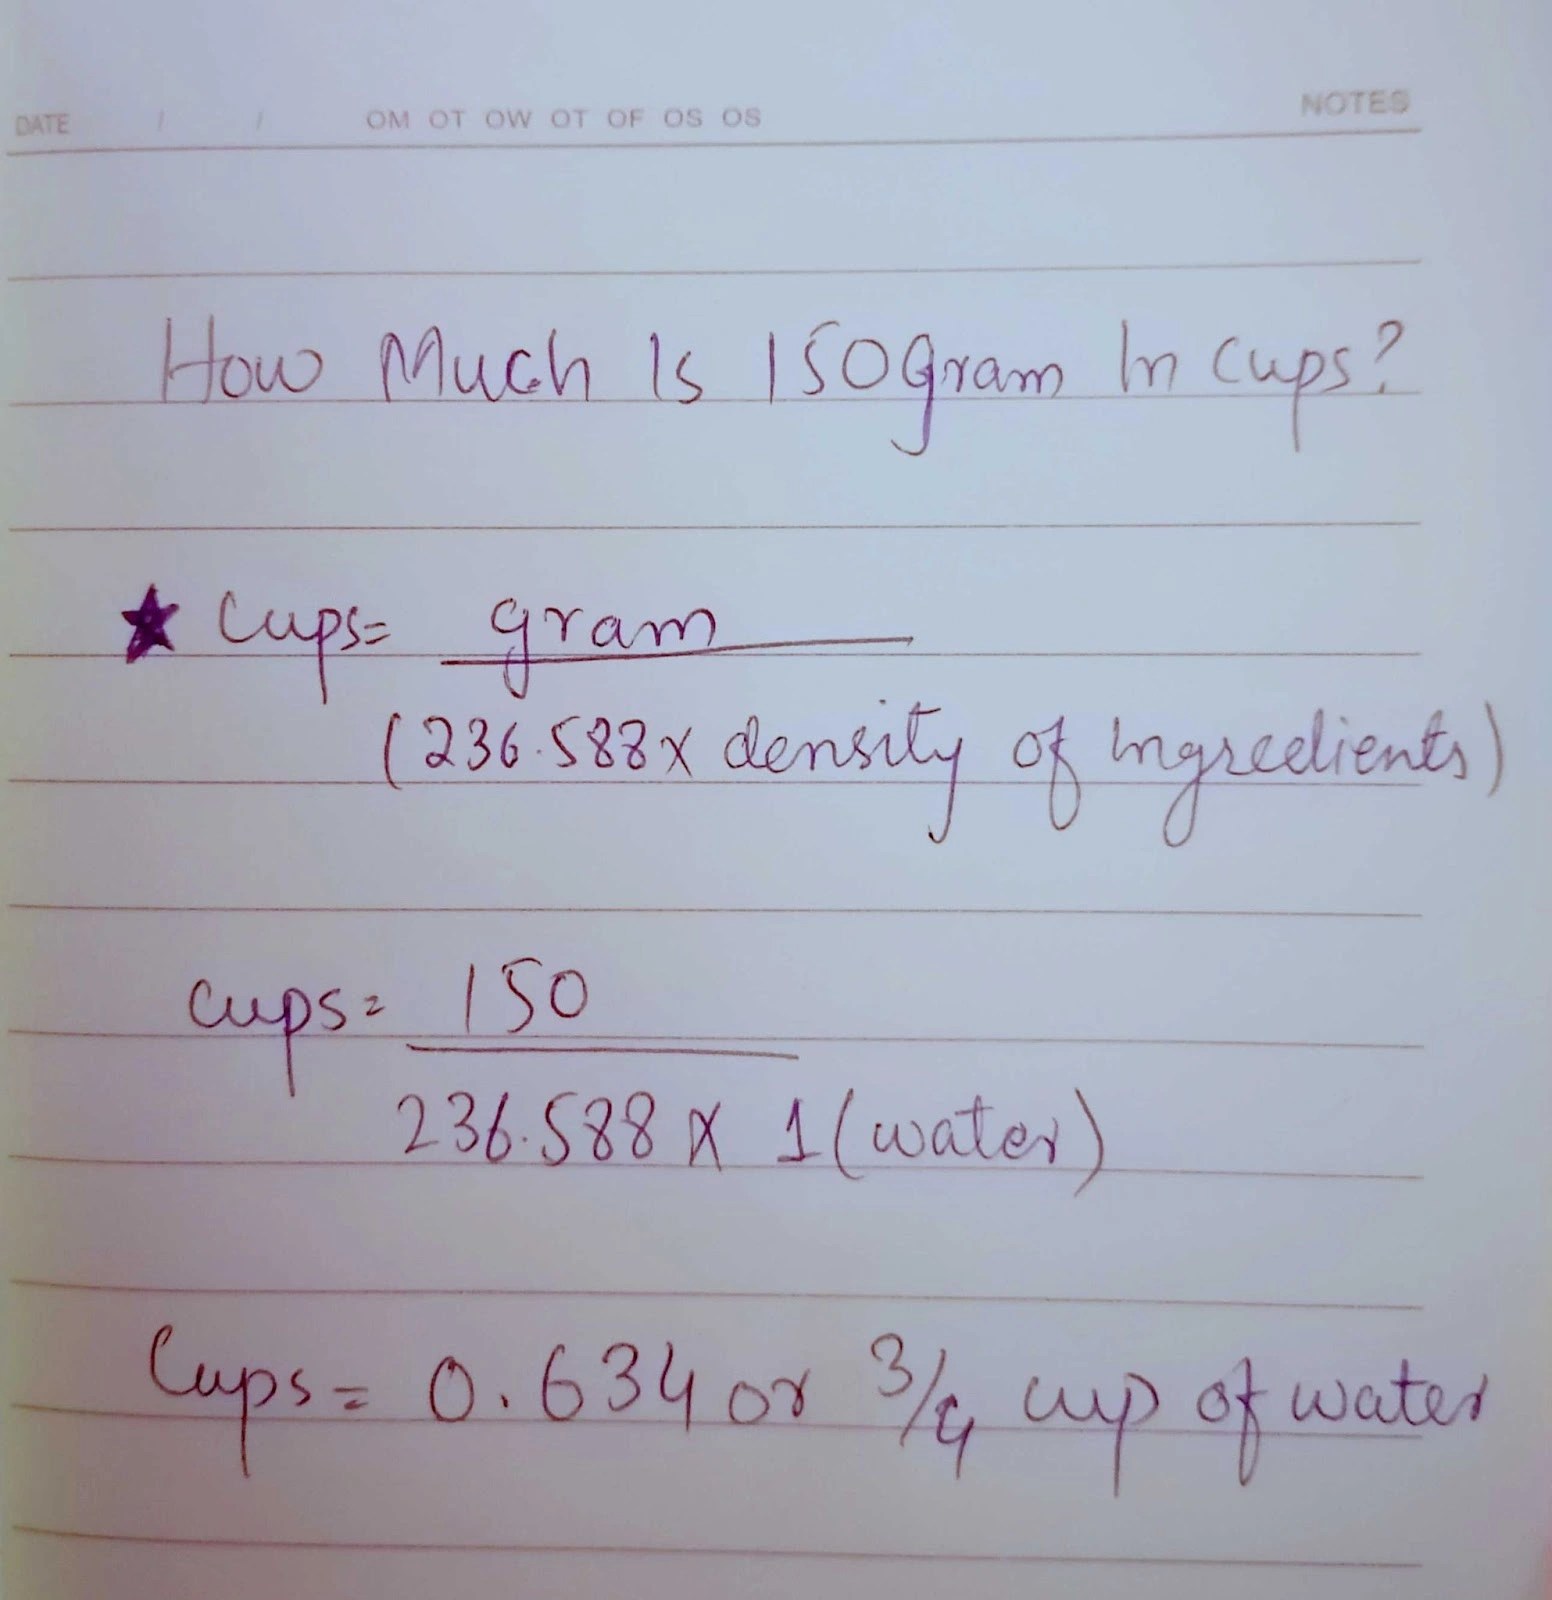 DATE / / OM OT OW OT OF OS OS NOTES
How Much Is 150gram In Cups?
★ Cups= gram
(236.588x density of Ingredients)
cups= 150
236.588 x 1 (water)
Cups= 0.634 or 3/4 cup of water